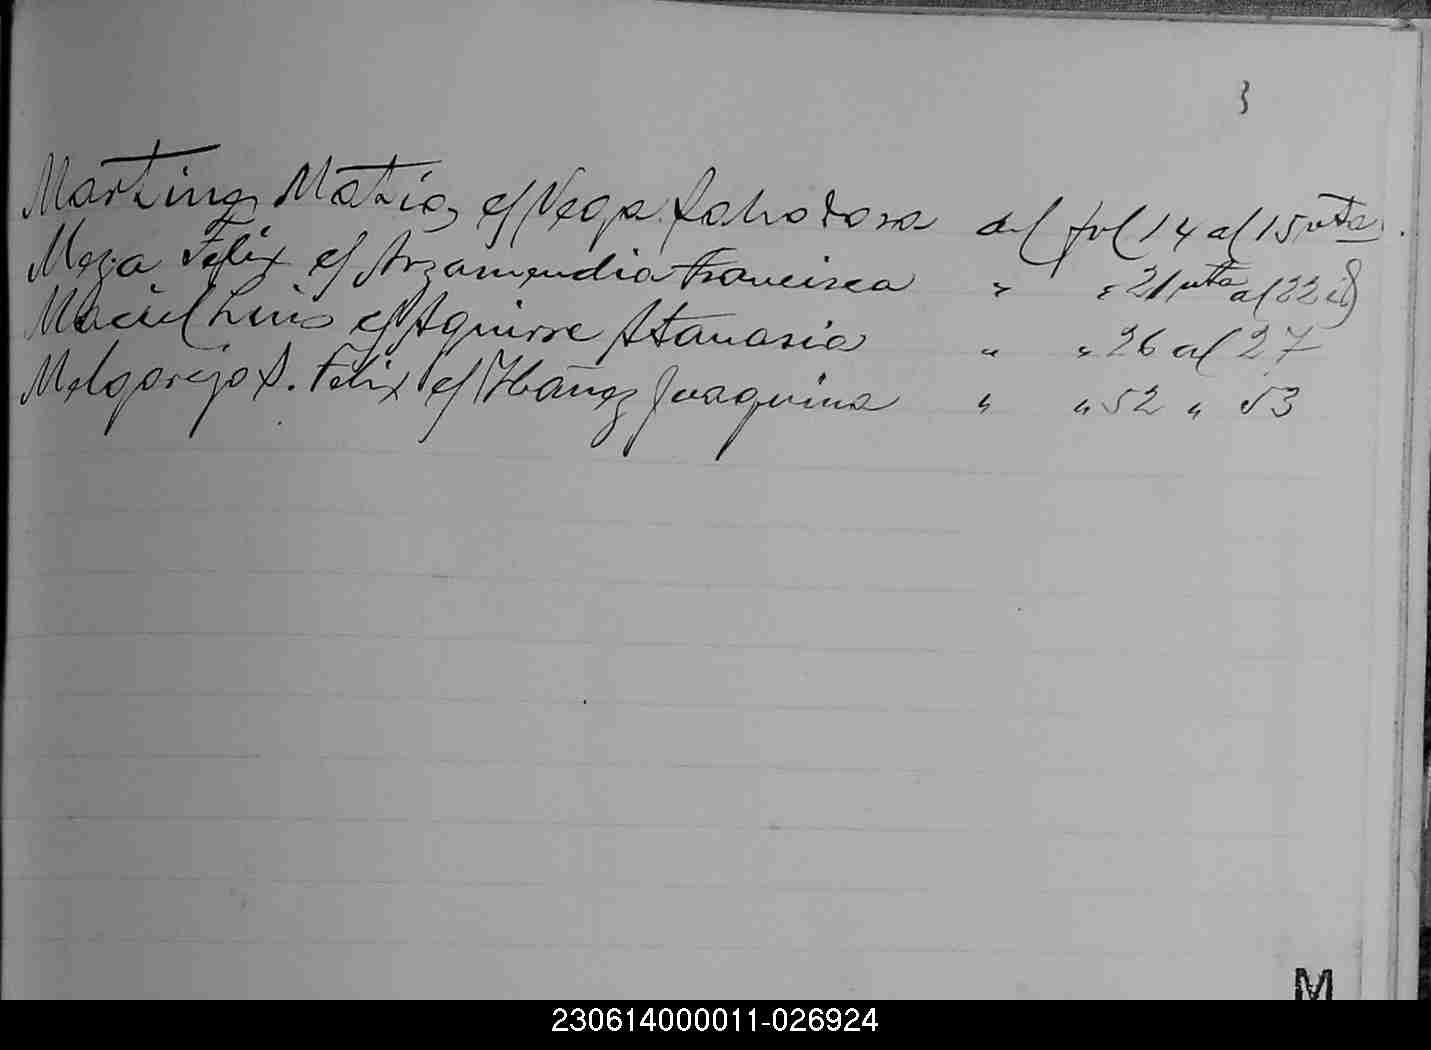 3
Martinez Matias c/ Vega Salvadora del fol 14 al 15 vta.
Meza Felix c/ Arzamendia Francisca " " 21 vta al 22 id
Maciel Luis c/ Aguirre Atanasia " " 26 al 27
Melgarejo S. Felix c/ Ybañez Joaquina " " 52 " 53
M
230614000011-026924